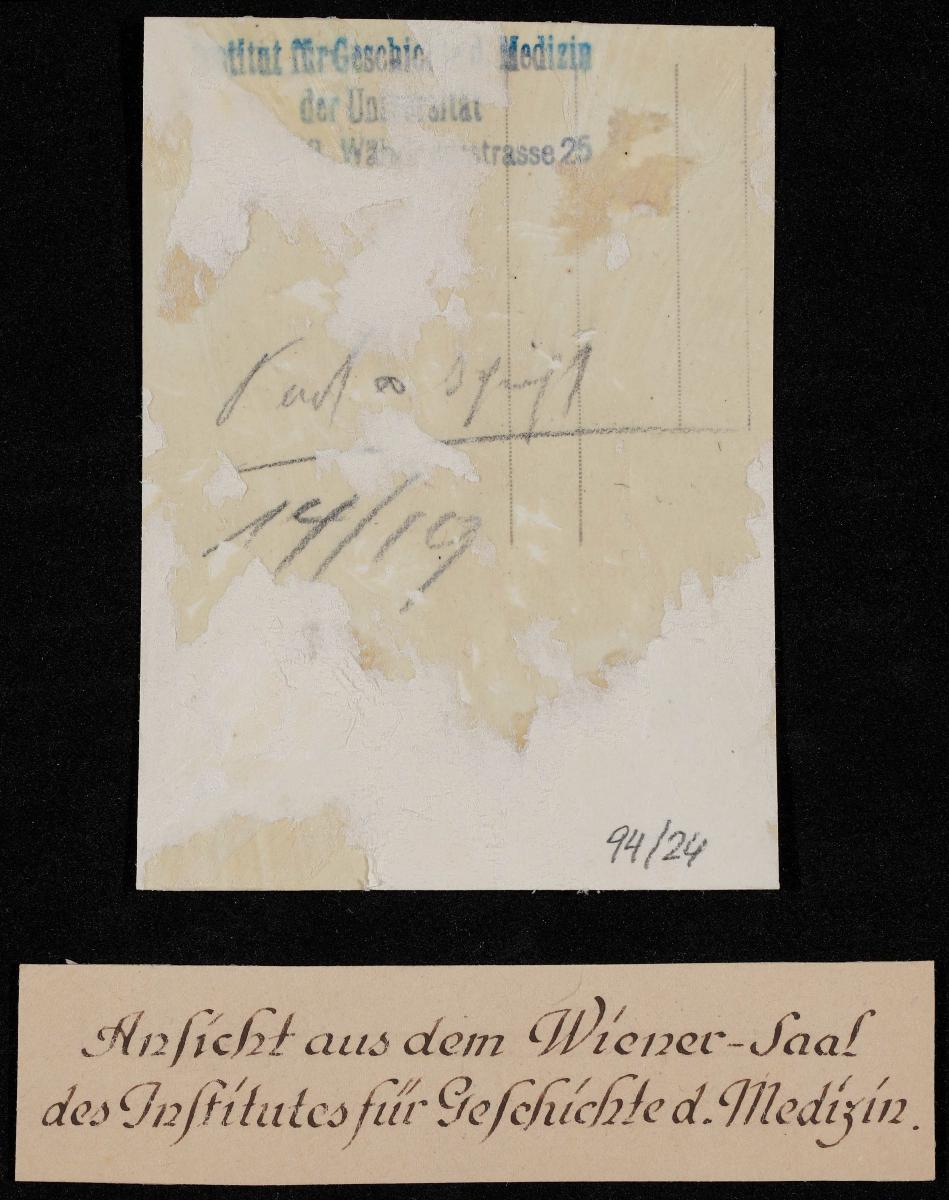 für Geschich d. Medizin
der Universität
strasse 25
14/19
94/24
Ansicht aus dem Wiener-Saal
des Institutes für Geschichte d. Medizin.